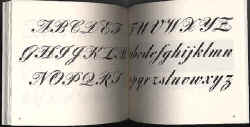 ABCDEF
GHIJKLM
NOPQRS
TUVWXYZ
abcdefghijklmn
opqrstuvwxyz